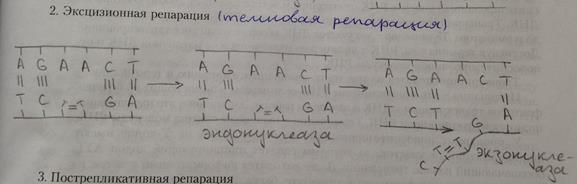 2. Эксцизионная репарация (темновая репарация)
A G A A C T A G A A C T A G A A C T
T C T=T G A T C T=T G A T C T G A
эндонуклеаза T=T C экзонуклеаза
3. Пострепликативная репарация